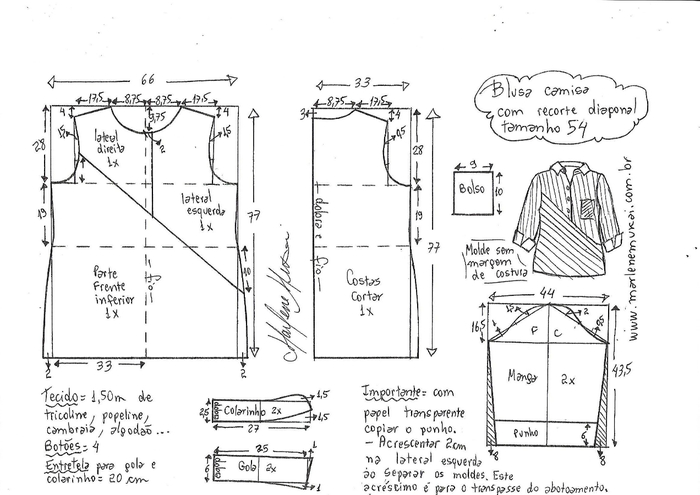 66
17,5 8,75 8,75 17,5
4
9,75
4
2
28
lateral
direita
1x
lateral
esquerda
1x
19
77
10
Parte
Frente
inferior
1x
fio
33
2
2
33
8,75 17,5
3
4
28
19
77
dobra e fio
Costas
Cortar
1x
Marlene Mukai
Blusa camisa
com recorte diagonal
tamanho 54
9
Bolso
10
Molde sem
margem
de costura
www.marlenemukai.com.br
44
16,5
2
F C
Manga 2x
43,5
Punho
6
8
8
Tecido = 1,50m de
tricoline, popeline,
cambraia, algodão...
Botões = 4
Entretela para gola e
colarinho = 20 cm
dobra
Colarinho 2x
1,5
1,5
27
25
6
dobra
Gola 2x
1
1
Importante = com
papel transparente
copiar o punho.
- Acrescentar 2cm
na lateral esquerda
ao separar os moldes. Este
acréscimo é para o transpasse do abotoamento.